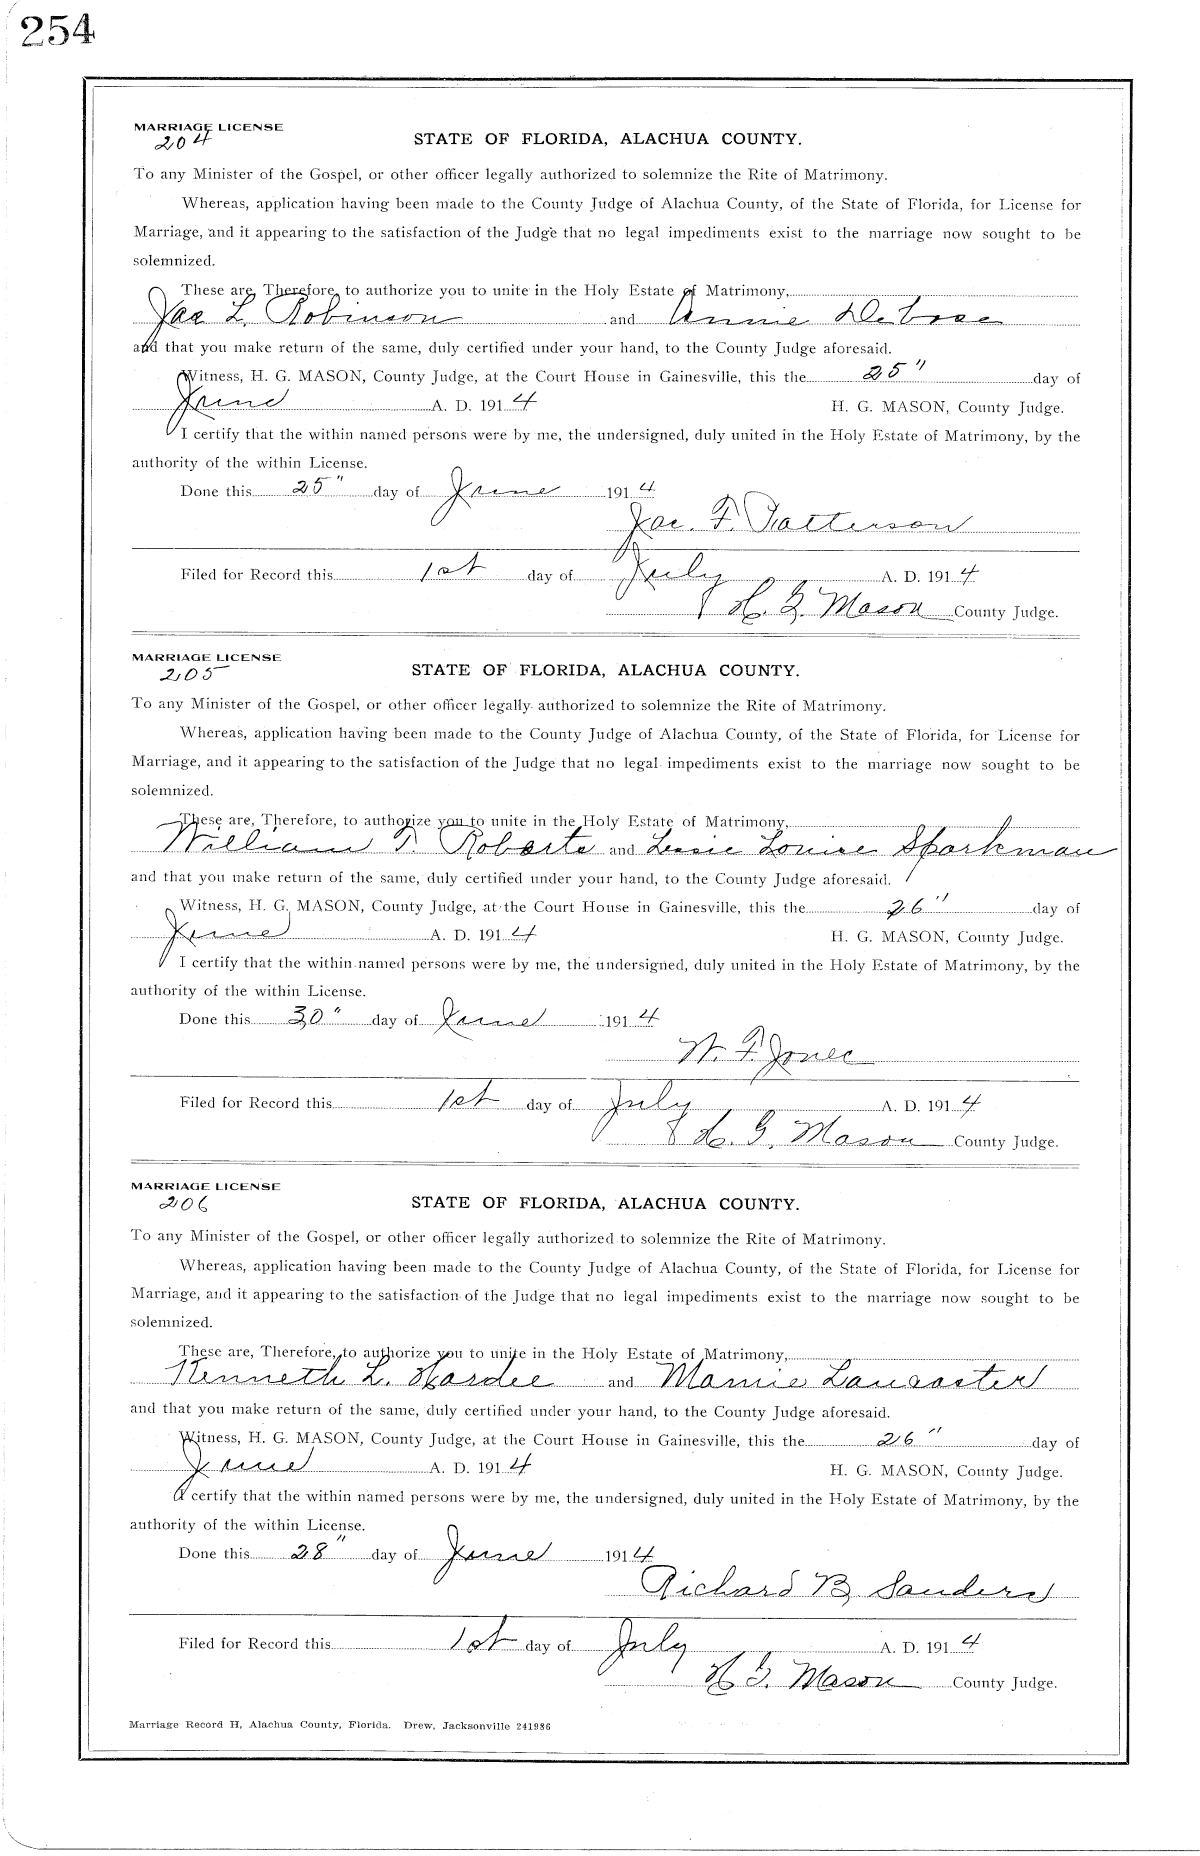 254
MARRIAGE LICENSE
204
STATE OF FLORIDA, ALACHUA COUNTY.
To any Minister of the Gospel, or other officer legally authorized to solemnize the Rite of Matrimony.
Whereas, application having been made to the County Judge of Alachua County, of the State of Florida, for License for
Marriage, and it appearing to the satisfaction of the Judge that no legal impediments exist to the marriage now sought to be
solemnized.
These are, Therefore, to authorize you to unite in the Holy Estate of Matrimony,
Jas L. Robinson and Annie Debose
and that you make return of the same, duly certified under your hand, to the County Judge aforesaid.
Witness, H. G. MASON, County Judge, at the Court House in Gainesville, this the 25" day of
June A. D. 1914 H. G. MASON, County Judge.
I certify that the within named persons were by me, the undersigned, duly united in the Holy Estate of Matrimony, by the
authority of the within License.
Done this 25" day of June 1914
Jas. F. Patterson
Filed for Record this 1st day of July A. D. 1914
H. G. Mason County Judge.
MARRIAGE LICENSE
205
STATE OF FLORIDA, ALACHUA COUNTY.
To any Minister of the Gospel, or other officer legally authorized to solemnize the Rite of Matrimony.
Whereas, application having been made to the County Judge of Alachua County, of the State of Florida, for License for
Marriage, and it appearing to the satisfaction of the Judge that no legal impediments exist to the marriage now sought to be
solemnized.
These are, Therefore, to authorize you to unite in the Holy Estate of Matrimony,
William T. Roberts and Lessie Louise Sparkman
and that you make return of the same, duly certified under your hand, to the County Judge aforesaid.
Witness, H. G. MASON, County Judge, at the Court House in Gainesville, this the 26" day of
June A. D. 1914 H. G. MASON, County Judge.
I certify that the within named persons were by me, the undersigned, duly united in the Holy Estate of Matrimony, by the
authority of the within License.
Done this 30" day of June 1914
W. F. Jones
Filed for Record this 1st day of July A. D. 1914
H. G. Mason County Judge.
MARRIAGE LICENSE
206
STATE OF FLORIDA, ALACHUA COUNTY.
To any Minister of the Gospel, or other officer legally authorized to solemnize the Rite of Matrimony.
Whereas, application having been made to the County Judge of Alachua County, of the State of Florida, for License for
Marriage, and it appearing to the satisfaction of the Judge that no legal impediments exist to the marriage now sought to be
solemnized.
These are, Therefore, to authorize you to unite in the Holy Estate of Matrimony,
Kenneth L. Hardee and Mamie Lancaster
and that you make return of the same, duly certified under your hand, to the County Judge aforesaid.
Witness, H. G. MASON, County Judge, at the Court House in Gainesville, this the 26" day of
June A. D. 1914 H. G. MASON, County Judge.
I certify that the within named persons were by me, the undersigned, duly united in the Holy Estate of Matrimony, by the
authority of the within License.
Done this 28" day of June 1914
Richard B. Sanders
Filed for Record this 1st day of July A. D. 1914
H. G. Mason County Judge.
Marriage Record H, Alachua County, Florida. Drew, Jacksonville 241986